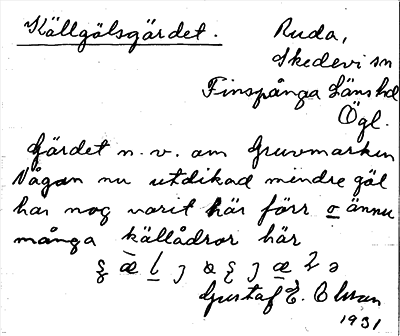 Källgölsgärdet.
Ruda,
Skedevi sn
Finspånga Länshd
Ögl.
Gärdet n. v. om Gruvmarken
Någon nu utdikad mindre göl
har nog varit här förr o ännu
många källådror här
Gustaf E. Olsson
1931